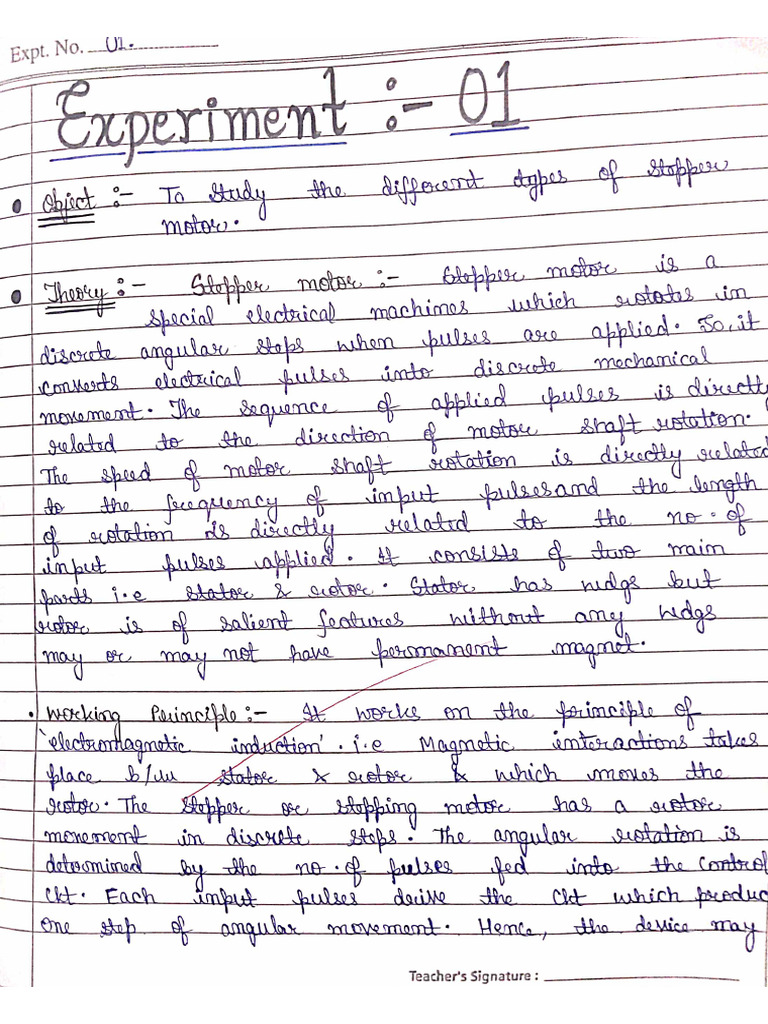 Expt. No. 01.
Experiment :- 01
Object :- To study the different types of stepper
motor.
Theory :- Stepper motor :- Stepper motor is a
special electrical machines which rotates in
discrete angular steps when pulses are applied. So, it
converts electrical pulses into discrete mechanical
movement. The sequence of applied pulses is directly
related to the direction of motor shaft rotation.
The speed of motor shaft rotation is directly related
to the frequency of input pulses and the length
of rotation is directly related to the no. of
input pulses applied. It consists of two main
parts i.e stator & rotor. Stator has wdgs but
rotor is of salient features without any wdgs
may or may not have permanent magnet.
Working Principle :- It works on the principle of
'electromagnetic induction'. i.e Magnetic interactions takes
place b/w stator & rotor & which moves the
rotor. The stepper or stepping motor has a rotor
movement in discrete steps. The angular rotation is
determined by the no. of pulses fed into the control
ckt. Each input pulses derive the ckt which produc
one step of angular movement. Hence, the device may
Teacher's Signature :